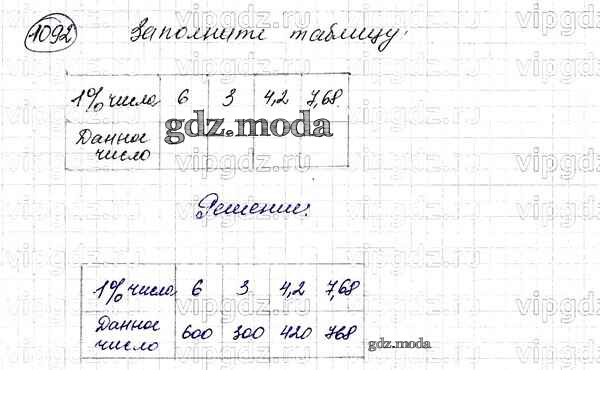 1092 Заполните таблицу:
1% числа 6 3 4,2 7,68
Данное число
gdz.moda
Решение:
1% числа 6 3 4,2 7,68
Данное число 600 300 420 768
gdz.moda
vipgdz.ru